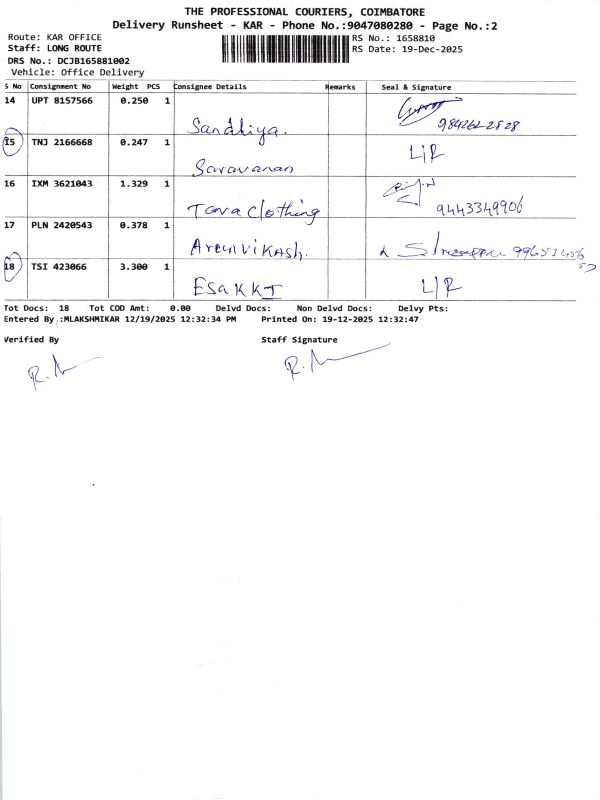 THE PROFESSIONAL COURIERS, COIMBATORE
Delivery Runsheet - KAR - Phone No.:9047080280 - Page No.:2
Route: KAR OFFICE RS No.: 1658810
Staff: LONG ROUTE RS Date: 19-Dec-2025
DRS No.: DCJB165881002
Vehicle: Office Delivery
S No Consignment No Weight PCS Consignee Details Remarks Seal & Signature
14 UPT 8157566 0.250 1
Sandhiya. 9842622828
15 TNJ 2166668 0.247 1 L/R
Saravanan
16 IXM 3621043 1.329 1
Tara clothing 9443349906
17 PLN 2420543 0.378 1
Arunvikash.
18 TSI 423066 3.300 1
Esakki L/R
Tot Docs: 18 Tot COD Amt: 0.00 Delvd Docs: Non Delvd Docs: Delvy Pts:
Entered By :MLAKSHMIKAR 12/19/2025 12:32:34 PM Printed On: 19-12-2025 12:32:47
Verified By Staff Signature